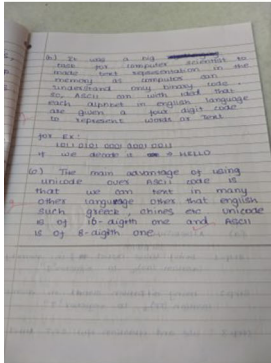 (b) It was a big
task for computer scientist to
made text representation in the
memory as computer can
understand only binary code
so, ASCII can with idea that
each alphabet in english language
are given a four digit code
to represent words or Text
for Ex:
1011 0101 0001 0001 0011
if we decode is = HELLO
(c) The main advantage of using
unicode over ASCII code is
that we can text in many
other language other that english
such greeck, chines etc unicode
is of 16-digith one and ASCII
is of 8-digith one